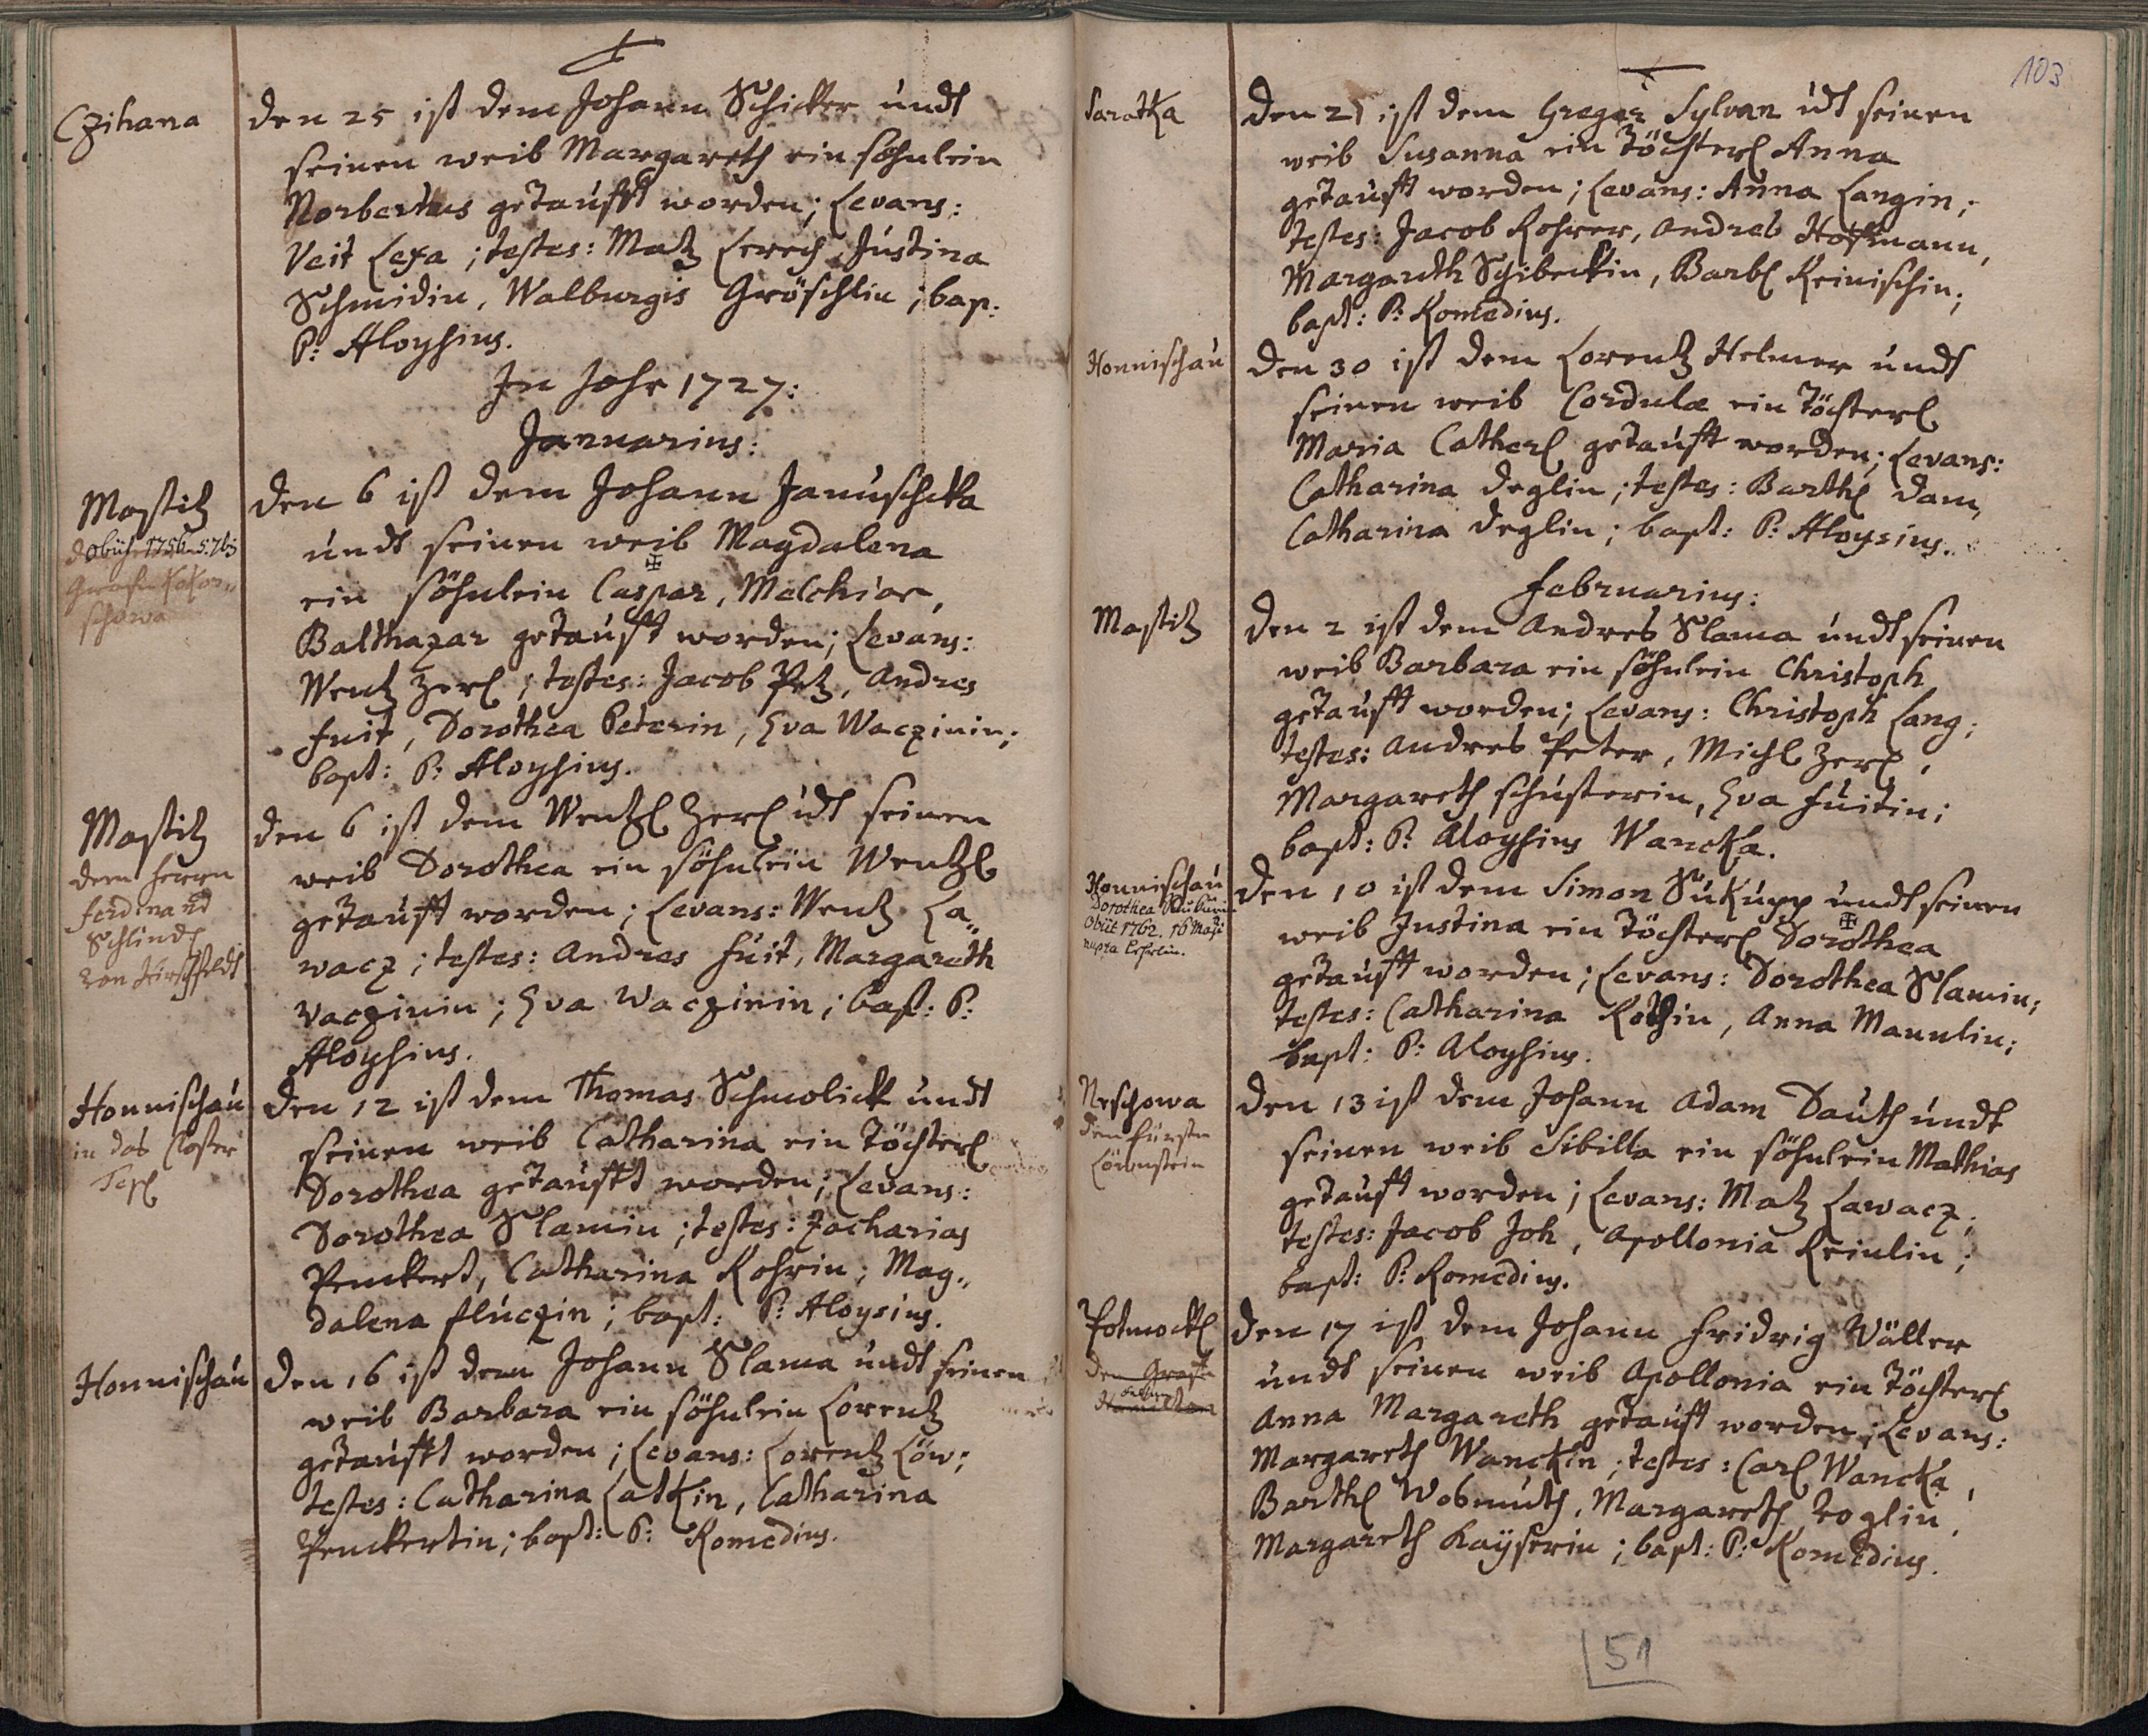 Czihana
den 25 ist dem Johann Schicker undt
seinen weib Margareth ein söhnlein
Norbertus getaufft worden; Levans:
Veit Lexa; testes: Matz Lerch, Justina
Schmidin, Walburgis Gröschlin; bap:
P: Aloysius.
In Jahr 1727:
Januarius:
Mastitz
obijt 1756
Grafin Kokor„
schowa
den 6 ist dem Johann Januschka
undt seinen weib Magdalena
ein söhnlein Caspar, Melchior,
Balthazar getaufft worden; Levans:
Wentz Zerl; testes: Jacob Petz, Andres
fuit, Dorothea Peterin, Eva Waczinin;
bapt: P: Aloysius.
Mastitz
dem herrn
ferdinand
Schlindl
von Hirschfeldt
den 6 ist dem Wentzl Zerl udt seinen
weib Dorothea ein söhnlein Wentzl
getaufft worden; Levans: Wentz La„
wacz; testes: Andres fuit, Margareth
Vaczinin; Eva Waczinin; bapt: P:
Aloysius.
Honnischau
in das Closter
Tepl
den 12 ist dem Thomas Schmolick undt
seinen weib Catharina ein töchterl
Dorothea getaufft worden; Levans:
Dorothea Slamin; testes: Zacharias
Penckert, Catharina Rohrin; Mag„
dalena fluczin; bapt: P: Aloysius.
Honnischau
den 16 ist dem Johann Slama undt seinen
weib Barbara ein söhnlein Lorentz
getaufft worden; Levans: Lorentz Löw;
testes: Catharina Latkin, Catharina
Penckertin; bapt: P: Romedius.
103
Saratka
den 21 ist dem Gregor Sylvan udt seinen
weib Susanna ein töchterl Anna
getaufft worden; Levans: Anna Langin;
testes: Jacob Rohrer, Andres Hoffmann,
Margareth Schibeckin, Barbl Reinischin;
bapt: P: Romedius.
Honnischau
den 30 ist dem Lorentz Helmer undt
seinen weib Cordula ein töchterl
Maria Catherl getaufft worden; Levans:
Catharina deglin; testes: Barthl dam,
Catharina deglin; bapt: P: Aloysius.
Februarius:
Mastitz
den 2 ist dem Andres Slama undt seinen
weib Barbara ein söhnlein Christoph
getaufft worden; Levans: Christoph Lang;
testes: Andres Peter, Michl Zerl,
Margareth schusterin, Eva fuitin;
bapt: P: Aloysius Wancka.
Honnischau
Dorothea
obijt 1762. 16 Maji
nupta
den 10 ist dem Simon Sukupp undt seinen
weib Justina ein töchterl Dorothea
getaufft worden; Levans: Dorothea Slamin;
testes: Catharina Rothin, Anna Mannlin;
bapt: P: Aloysius.
Neschowa
den fürsten
Löwenstein
den 13 ist dem Johann Adam Dauth undt
seinen weib Sibilla ein söhnlein Mathias
getaufft worden; Levans: Matz Lawacz;
testes: Jacob Joh, Apollonia Reinlin;
bapt: P: Romedius.
Pokmockl
den Grafen
den 17 ist dem Johann Fridrig Wälter
undt seinen weib Apollonia ein töchterl
Anna Margareth getaufft worden; Levans:
Margareth Wanckin; testes: Carl Wancka,
Barthl Wobmuth, Margareth toglin,
Margareth Kaÿserin; bapt: P: Romedius.
51